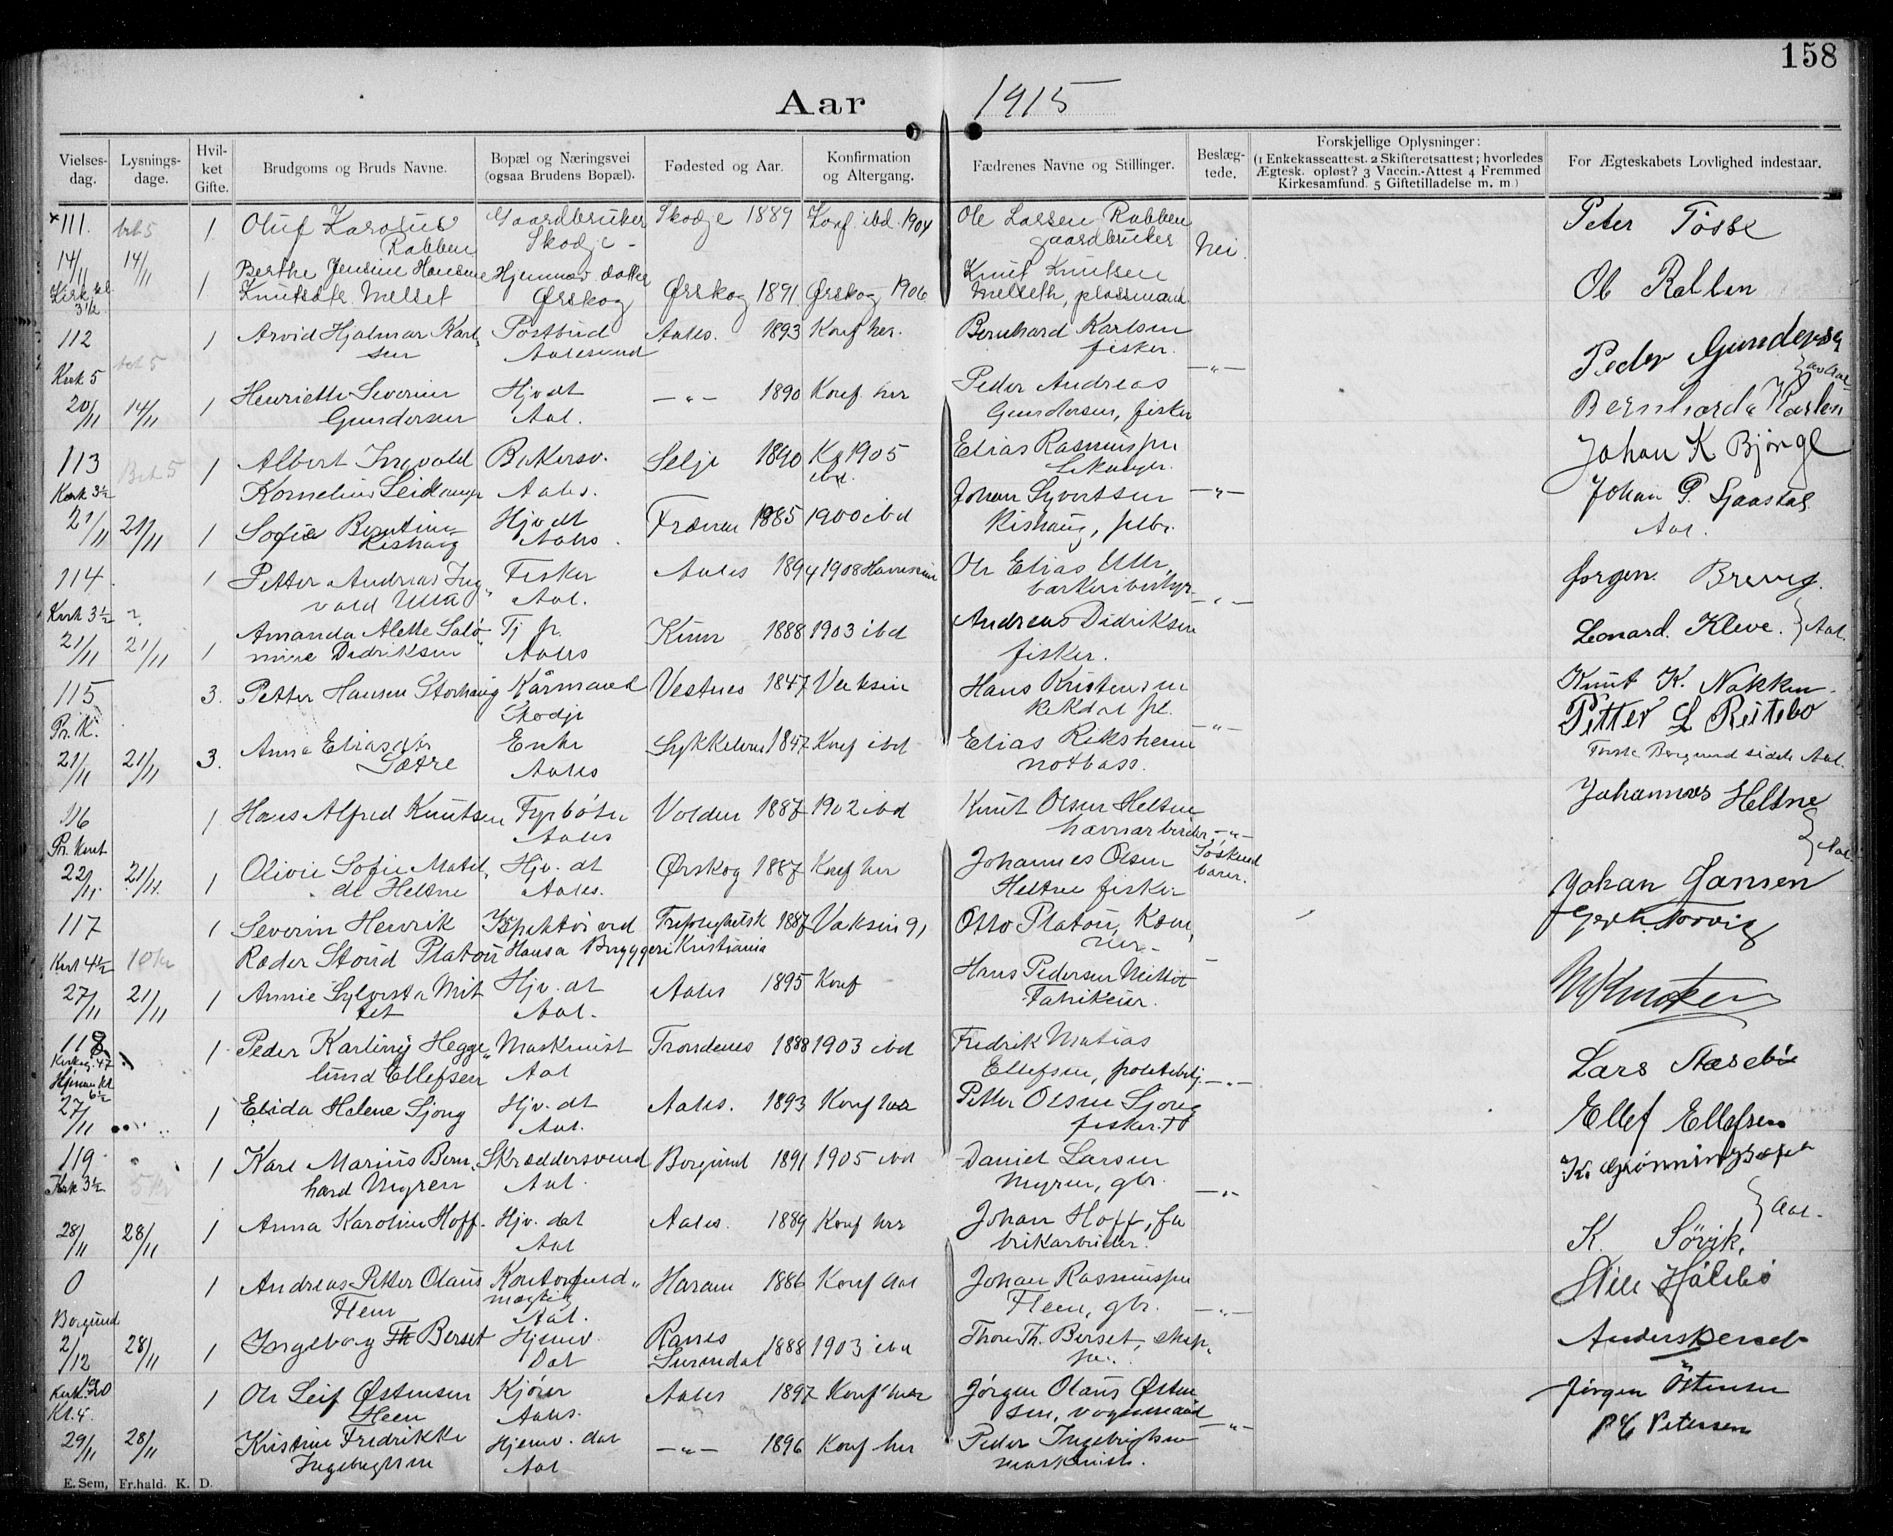 158
Aar 1915
Vielses-dag. Lysnings-dage. Hvil-ket Gifte. Brudgoms og Bruds Navne. Bopæl og Næringsvei (ogsaa Brudens Bopæl). Fødested og Aar. Konfirmation og Altergang. Fædrenes Navne og Stillinger. Beslæg-tede. Forskjellige Oplysninger: (1 Enkekasseattest. 2 Skifteretsattest; hvorledes Ægtesk. opløst? 3 Vaccin.-Attest 4 Fremmed Kirkesamfund. 5 Giftetilladelse m. m.) For Ægteskabets Lovlighed indestaar.
111. 1 Oluf Karolus Gaardbruker Skodje 1889 Konf. ibd. 1904 Ole Larsen Rabben Peter Tøsse
14/11 14/11 Rabben Skodje - gaardbruker Nei
1 Berthe Jensine Hansine Hjemmev. datter Knut Knutsen
3½ Knutsdtr. Melset Ørskog Ørskog 1891 Ørskog 1906 Melseth, plassmand Ol Rabben
112 1 Arvid Hjalmar Karl Postbud Aales. 1893 Konf her. Bernhard Karlsen
sen Aalesund fisker. Peder Gundersen
Kirk 5 -"-
1 Henriette Severine Hjv dt -"- 1890 Konf her Peder Andreas
20/11 14/11 Gundersen Aal. Gundersen, fisker Bernhard Karlsen
113 1 Albert Ingvald Bakersv. Selje 1890 Kf 1905 Elias Rasmussen Johan K Bjørge
Kirk 3½ Kornelius Leikanger Aales. ibd. Leikanger. -"-
21/11 21/11 1 Sofie Berntine Hjv dt Frænen 1885 1900 ibd Johan Syvertsen Johan P. Gaasdal
Rishaug Aales. Rishaug, plbr. Aal.
114 1 Petter Andreas Ing Fisker Aales 1894 1908 Ole Elias Ulla, Jørgen Brevig.
Kirk 3½ ? vold Ulla Aal. -"-
21/11 21/11 1 Amanda Alette Salo Tj. p. 1888 1903 ibd Andreas Didriksen Leonard. Kleve. } Aal.
mine Didriksen Aales fisker.
115 3. Petter Hansen Storhaug Kårmand Vestnes 1847 Vaksin Hans Kristensen Knut K. Nakken
Pr. K. Skodje Rekdal pl. -"- Petter L Reitebø
21/11 21/11 3. Anna Eliasdtr Enke Sykkelven 1847 Konf ibd Elias Reksheim
Sætre Aales notbass. Aal.
116 1 Hans Alfred Knutsen Fyrbøter Volden 1887 1902 ibd Knut Olsen Heltne Johannes Heltne
Aales havnarbeider -"- } Aal.
22/11 21/11 1 Olivie Sofie Matil Hjv. dt Ørskog 1887 Konf her Johannes Olsen Søskend
de Heltne Aales. Heltne fisker barn. Johan Jansen
117 1 Severin Henrik Inspektør ved 1887 Vaksin 91 Otto Platou, Kem
Kirk 4½ 10 kr Roder Stoud Platou Hansa Bryggeri Kristiania ner. -
27/11 21/11 1 Annie Sylvester Mit Hjv. dt Aales 1895 Konf Hans Pedersen Mittet
tet Aal. Fabrikeier.
118 1 Peder Karliny Hegge Maskinist Trondenes 1888 1903 ibd Fredrik Matias
lund Ellefsen Aal Ellefsen, politibetj. -"- Lars Aasebø
6½
27/11 1 Elida Helene Sjong Hjv. dt Aales. 1893 Konf her Petter Olsen Sjong Ellef Ellefsen
Aal. fisker.
119 1 Karl Marius Bern Skræddersvend Borgund 1891 1905 ibd Daniel Larsen K. Grønningsæter
Kirk 3½ 5 kr hard Myren Aal. Myren, gbr. -"-
28/11 28/11 1 Anna Karoline Hoff Hjv. dat Aales. 1889 Konf her Johan Hoff, fa } Aal.
Aal brikarbeider. K. Søvik.
0 1 Andreas Petter Olaus Kontorfuld Haram 1886 Konf Aal Johan Rasmussen
Flem mægtig Aal. Flem, gbr. -"-
Borgund
2/12 28/11 1 Ingeborg Th Berset Hjemv. Ranes 1888 1903 ibd Thore Th. Berset, skip
Dat Surendal per.
120 1 Ole Leif Østensen Kjører Aales 1897 Konf her Jørgen Olaus Østen Jørgen Østensen
Kl. 4. Heen Aales. sen, vognmand -"-
29/11 28/11 1 Kristine Fredrikke Hjemv. dat -"- 1896 Konf her Peder Ingebrigtsen Petersen
Ingebrigtsen Aal maskinist.
E. Sem, Fr.hald. K. D.